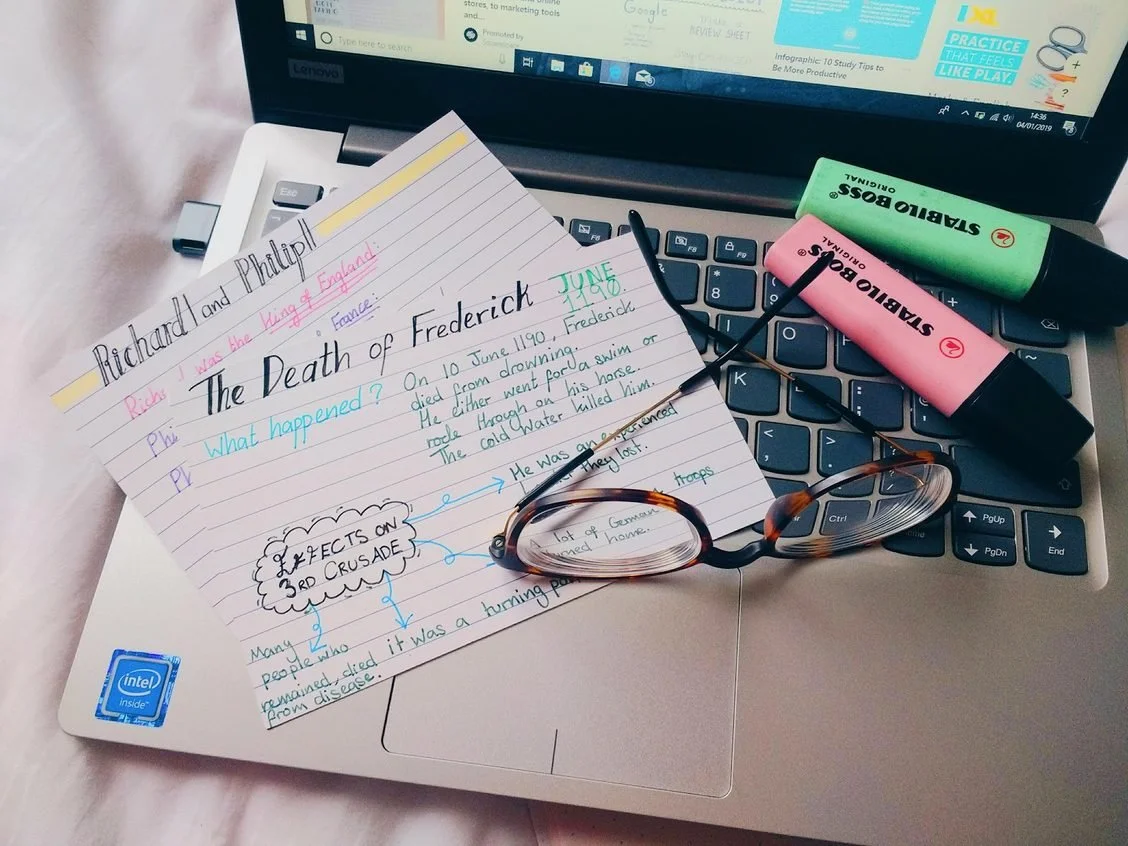 stores, to marketing tools
and...
Promoted by
Google
REVIEW SHEET
Infographic: 10 Study Tips to
Be More Productive
IXL
PRACTICE
THAT FEELS
LIKE PLAY.
Type here to search
14:36
04/01/2019
Lenovo
Esc
F8
F9
STABILO BOSS
ORIGINAL
STABILO BOSS
ORIGINAL
Richard I and Philip II
I was the King of England:
France:
The Death of Frederick
JUNE
1190
What happened?
On 10 June 1190, Frederick
died from drowning.
He either went for a swim or
rode through on his horse.
The cold water killed him.
EFFECTS ON
3RD CRUSADE
He was an experienced
they lost.
A lot of German troops
home.
it was a turning
Many
people who
remained, died
from disease.
*
8
I
O
K
<
>
Ctrl
PgUp
PgDn
End
intel
inside